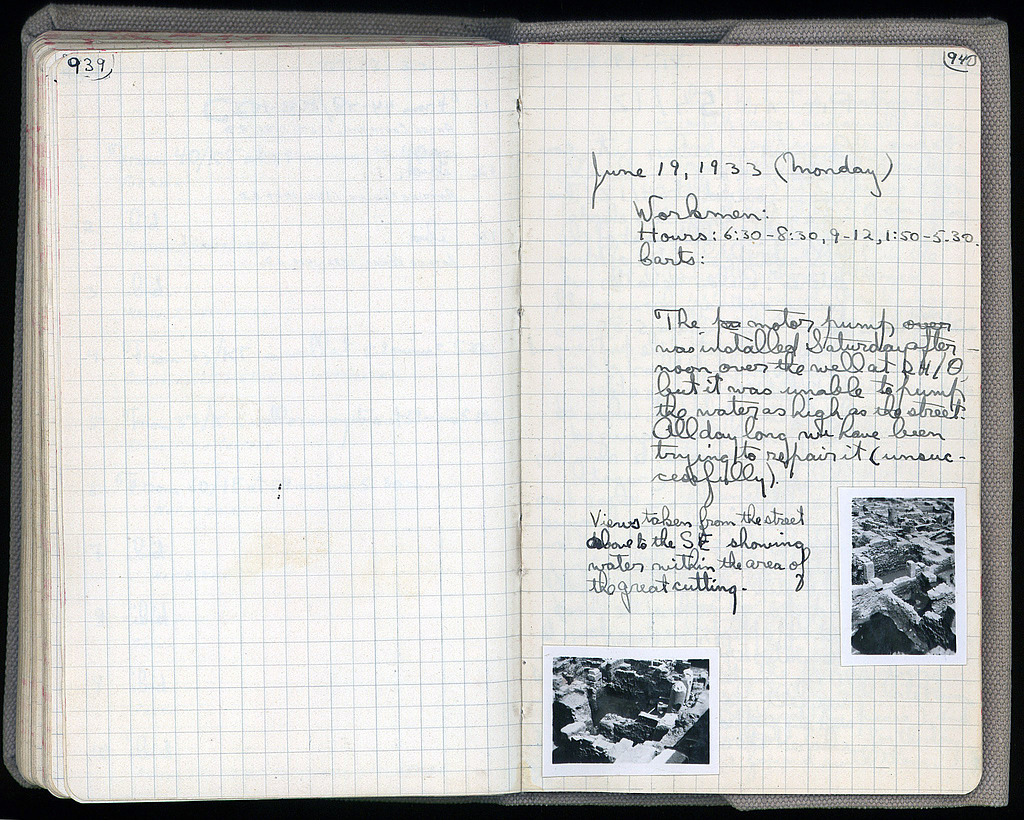 939
940
June 19, 1933 (Monday)
Workmen:
Hours: 6:30-8:30, 9-12, 1:50-5.30.
Carts:
The motor pump over
was installed Saturday after-
noon over the well at
but it was unable to pump
the water as high as the street.
All day long we have been
trying to repair it (unsuc-
cessfully).
Views taken from the street
above to the SE showing
water within the area of
the great cutting.